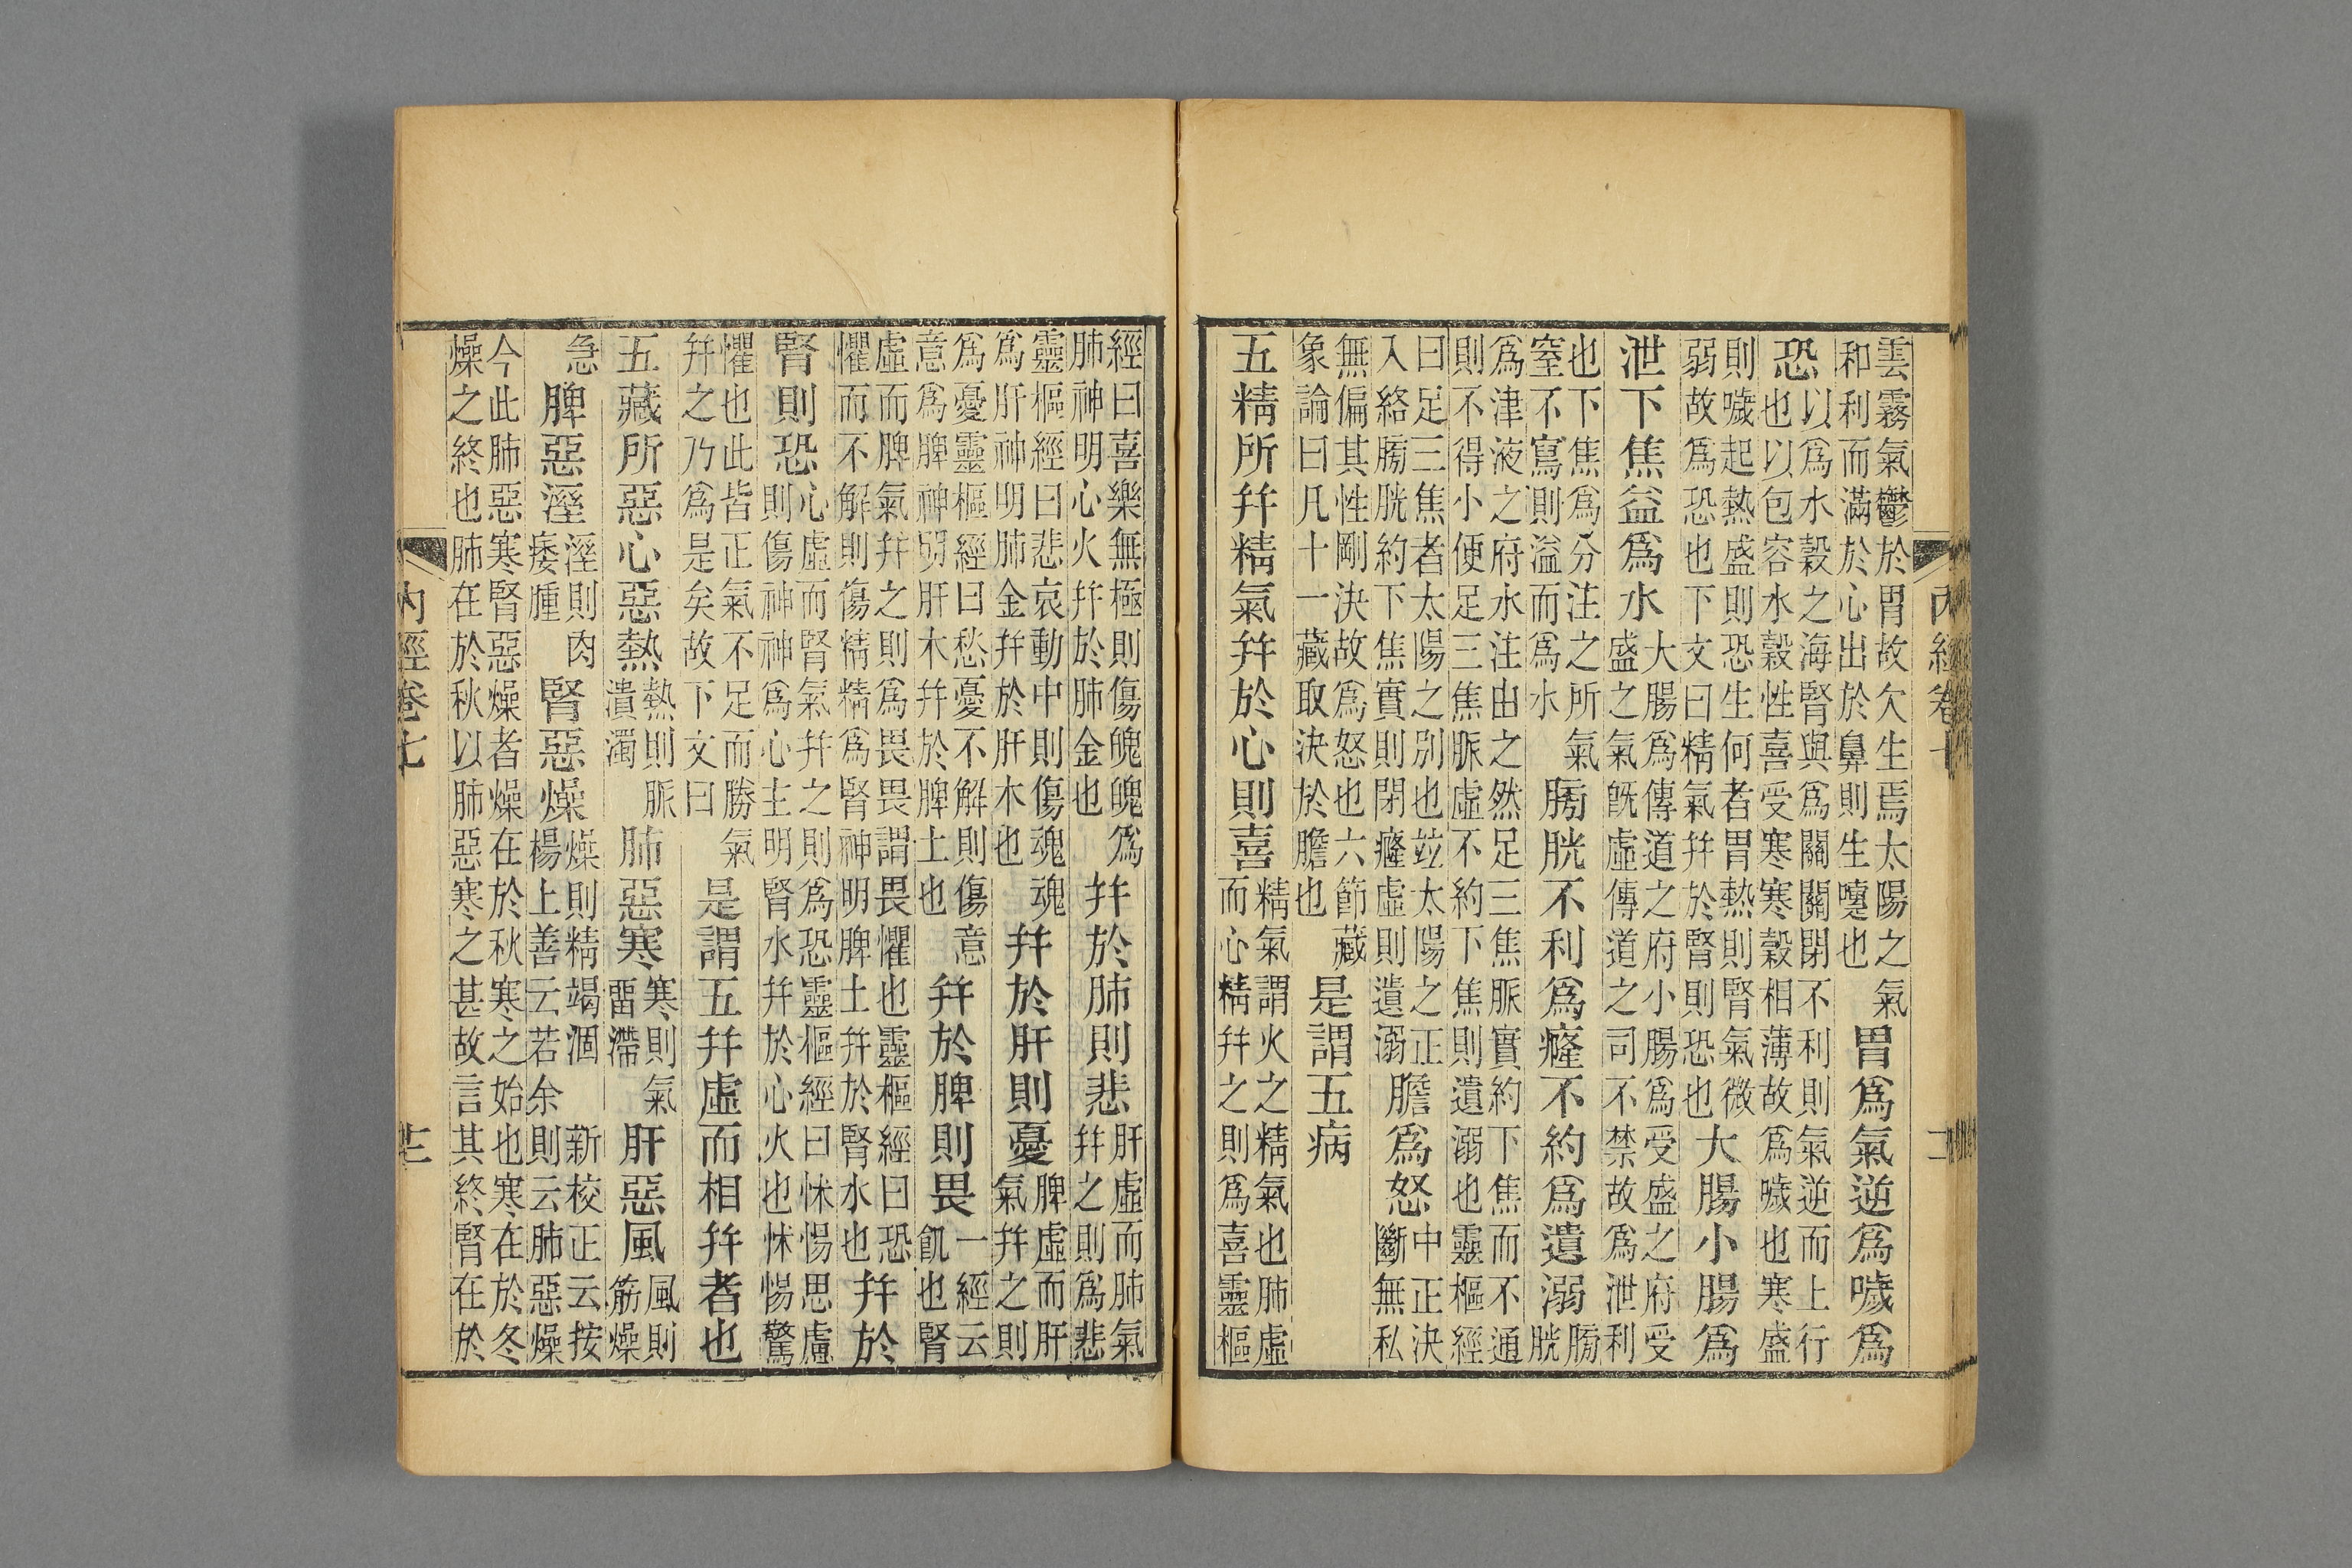 雲霧氣鬱於胃故欠生焉太陽之氣
和利而滿於心出於鼻則生嚏也
胃爲氣逆爲噦爲
恐
以爲水穀之海腎與爲關關閉不利則氣逆而上行
也以包容水穀性喜受寒寒穀相薄故爲噦也寒盛
則噦起熱盛則恐生何者胃熱則腎氣微
弱故爲恐也下文曰精氣幷於腎則恐也
大腸小腸爲
泄下焦益爲水
大腸爲傳道之府小腸爲受盛之府受
盛之氣旣虛傳道之司不禁故爲泄利
也下焦爲分注之所氣
窒不寫則溢而爲水
膀胱不利爲癃不約爲遺溺
膀
胱
爲津液之府水注由之然足三焦脈實約下焦而不通
則不得小便足三焦脈虛不約下焦則遺溺也靈樞經
曰足三焦者太陽之別也竝太陽之正
入絡膀胱約下焦實則閉癃虛則遺溺
膽爲怒
中正決
斷無私
無偏其性剛決故爲怒也六節藏
象論曰凡十一藏取決於膽也
是謂五病
五精所幷精氣幷於心則喜
精氣謂火之精氣也肺虛
而心精幷之則爲喜靈樞
經曰喜樂無極則傷魄魄爲
肺神明心火幷於肺金也
幷於肺則悲
肝虛而肺氣
幷之則爲悲
靈樞經曰悲哀動中則傷魂魂
爲肝神明肺金幷於肝木也
幷於肝則憂
脾虛而肝
氣幷之則
爲憂靈樞經曰愁憂不解則傷意
意爲脾神明肝木幷於脾土也
幷於脾則畏
一經云
飢也腎
虛而脾氣幷之則爲畏畏謂畏懼也靈樞經曰恐
懼而不解則傷精精爲腎神明脾土幷於腎水也
幷於
腎則恐
心虛而腎氣幷之則爲恐靈樞經曰怵惕思慮
則傷神神爲心主明腎水幷於心火也怵惕驚
懼也此皆正氣不足而勝氣
幷之乃爲是矣故下文曰
是謂五幷虛而相幷者也
五藏所惡心惡熱
熱則脈
潰濁
肺惡寒
寒則氣
畱滯
肝惡風
風則
筋燥
急
脾惡溼
溼則肉
痿腫
腎惡燥
燥則精竭涸 新校正云按
楊上善云若余則云肺惡燥
今此肺惡寒腎惡燥者燥在於秋寒之始也寒在於冬
燥之終也肺在於秋以肺惡寒之甚故言其終腎在於
內經卷七